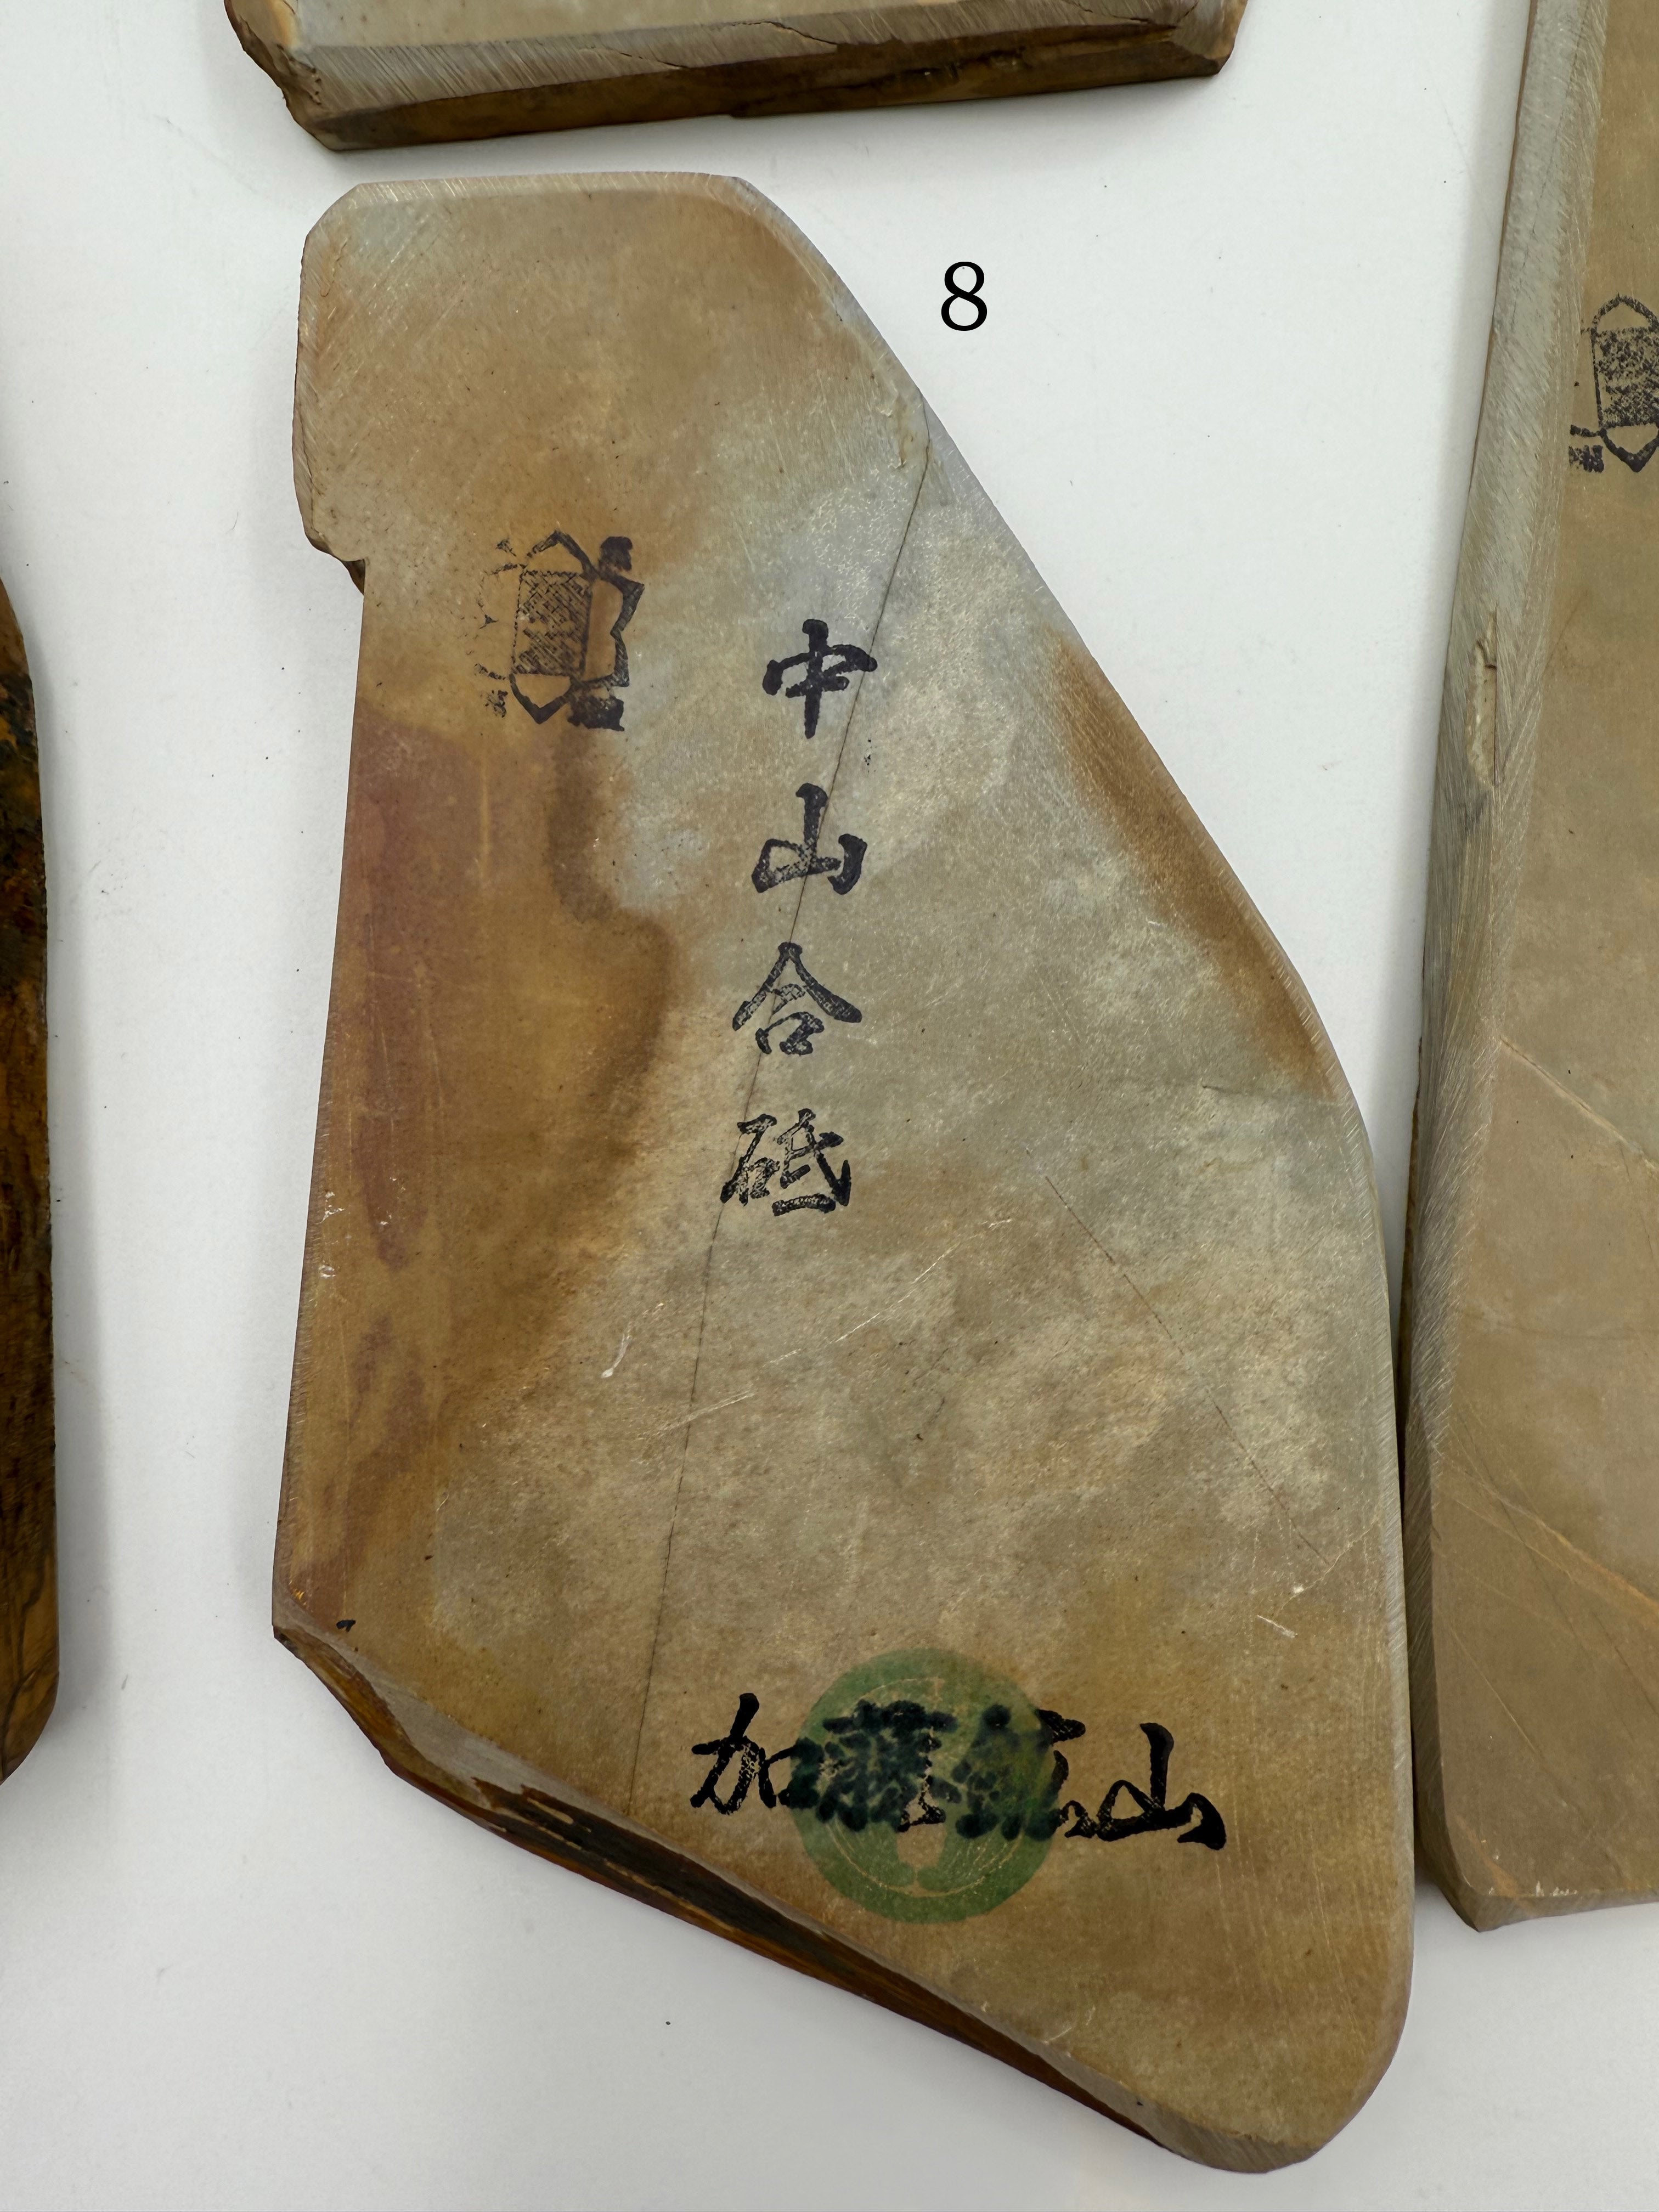 8
中山合砥
加藤鉱山